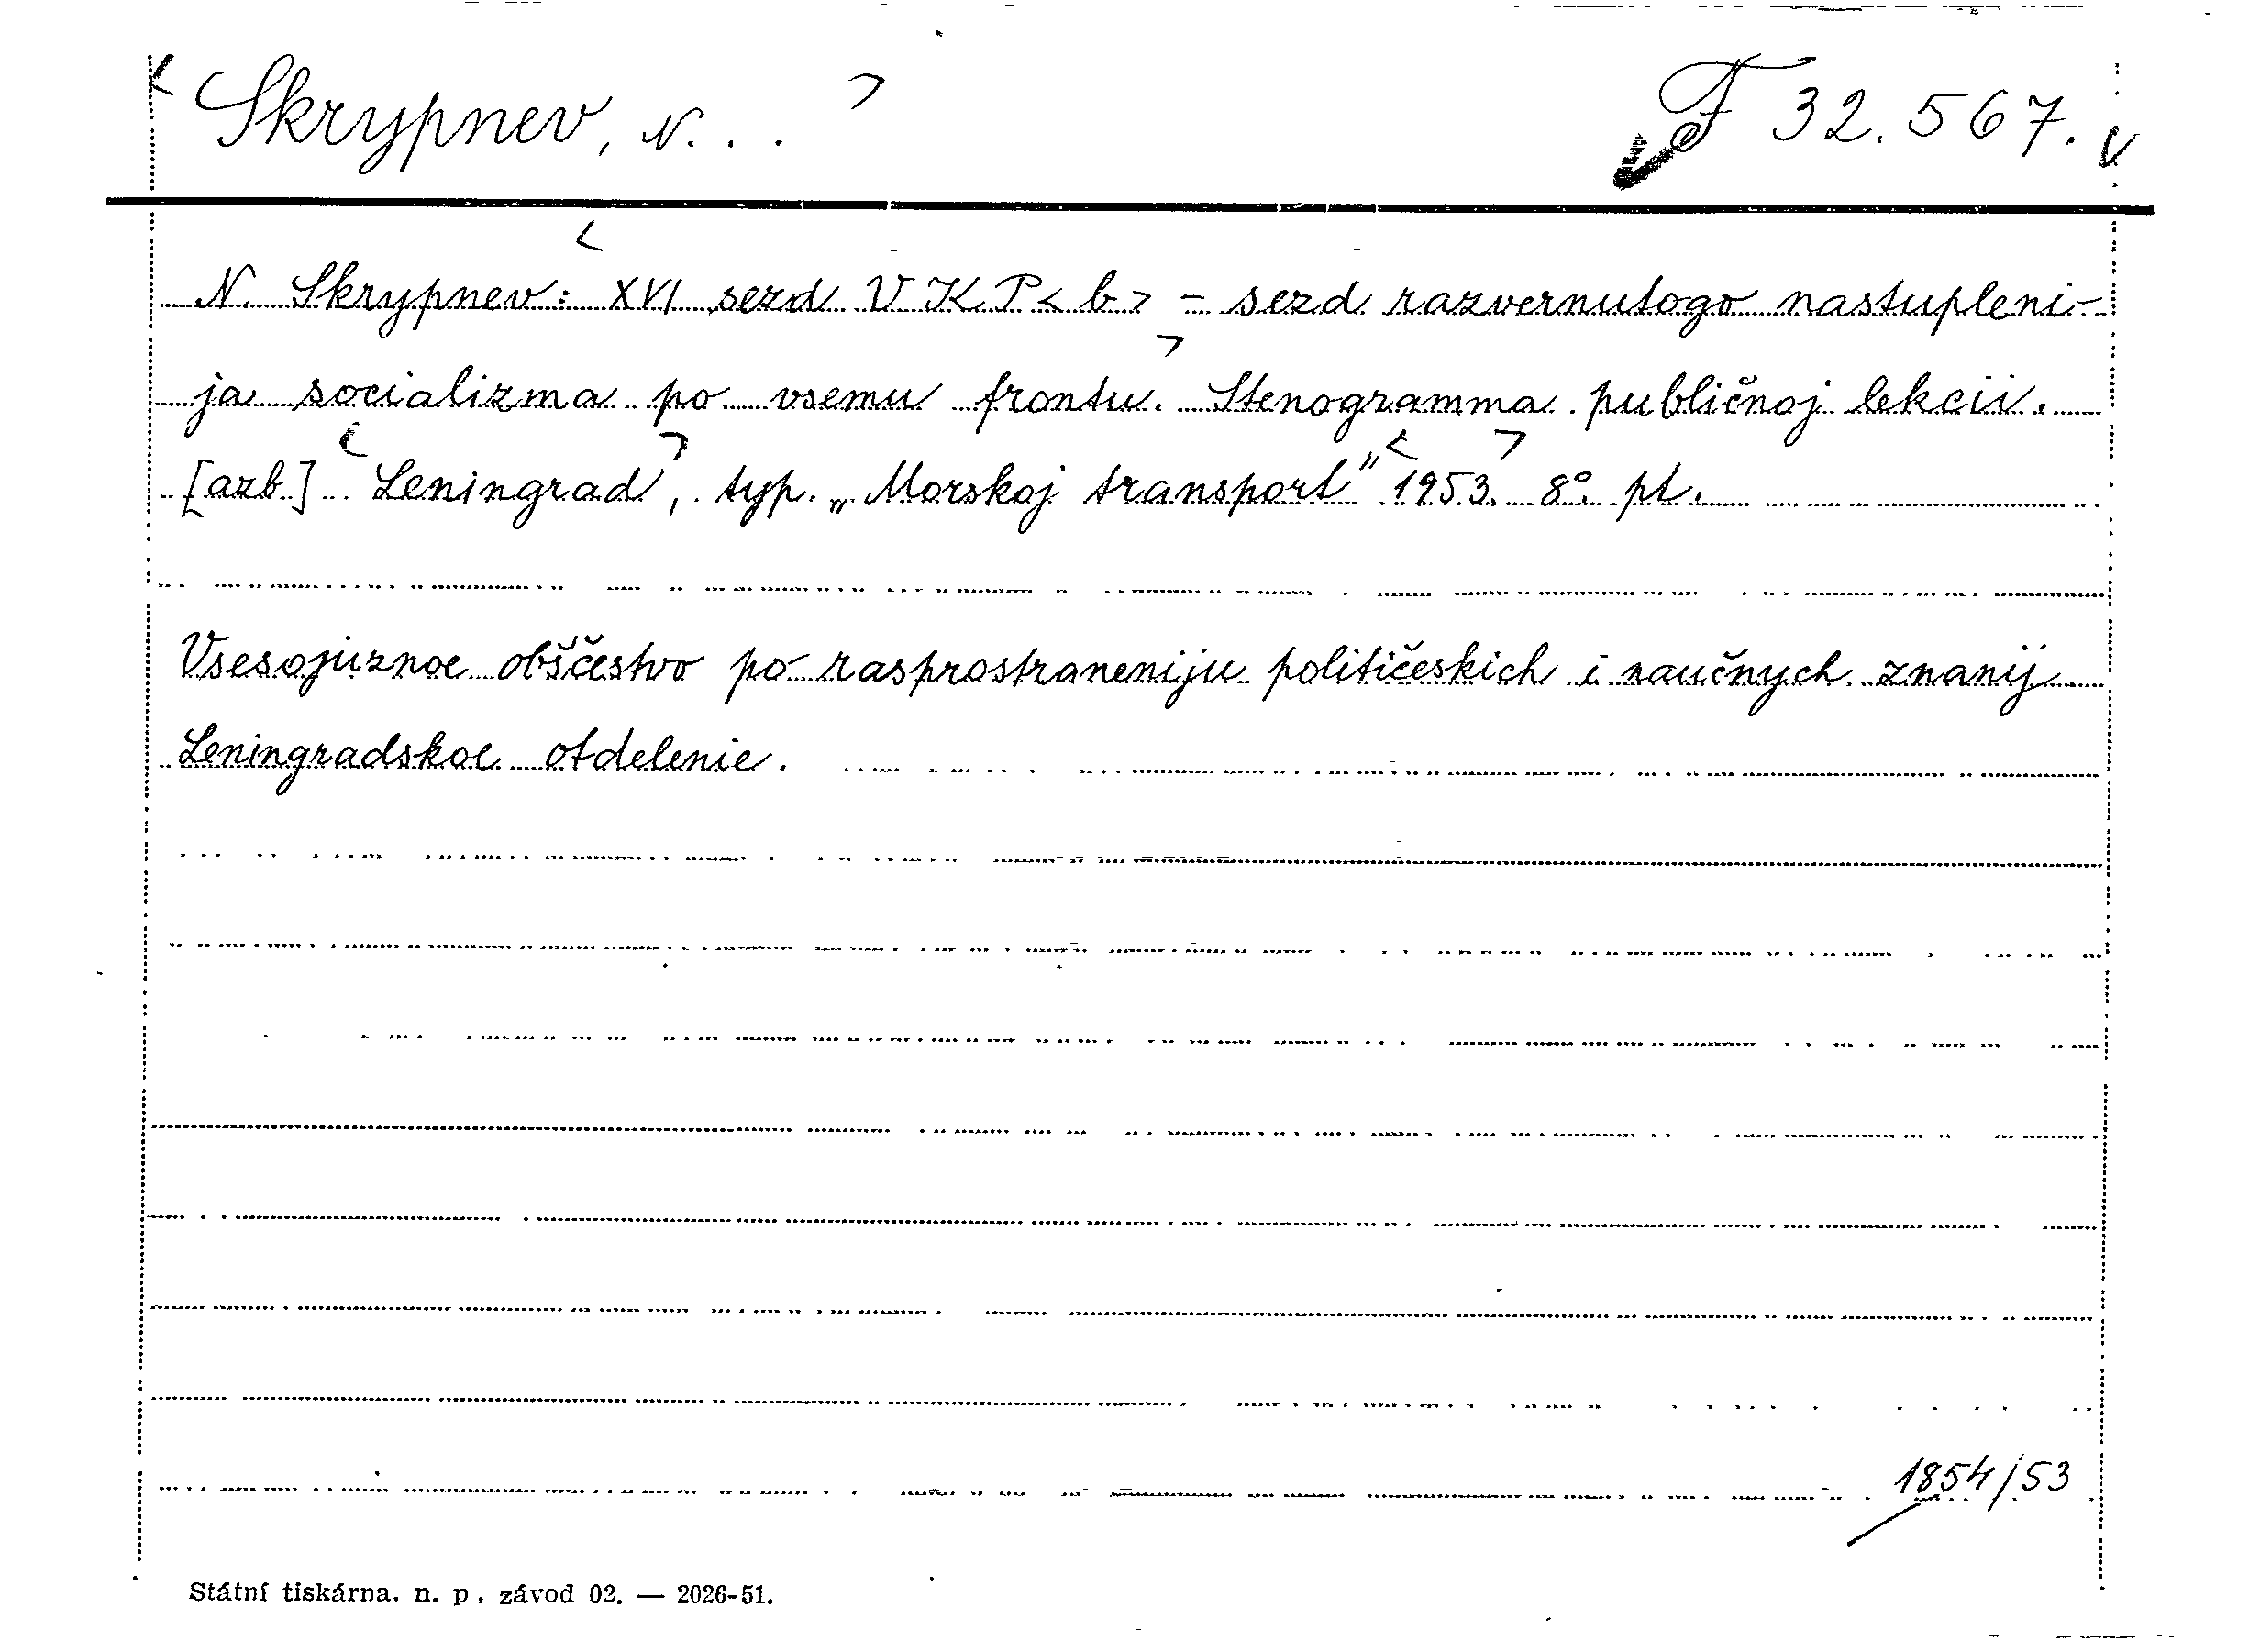 < Skrypnev, N. . . > F 32.567.
N. Skrypnev: < XVI sezd VKP<b> - sezd razvernutogo nastupleni-
ja socializma po vsemu frontu. > Stenogramma publičnoj lekcii.
[azb.] < Leningrad >, typ. „Morskoj transport" < 1953. > 8°. pt.
Vsesojuznoe obščestvo po rasprostraneniju političeskich i naučnych znanij
Leningradskoe otdelenie.
1854/53
Státní tiskárna, n. p., závod 02. — 2026-51.